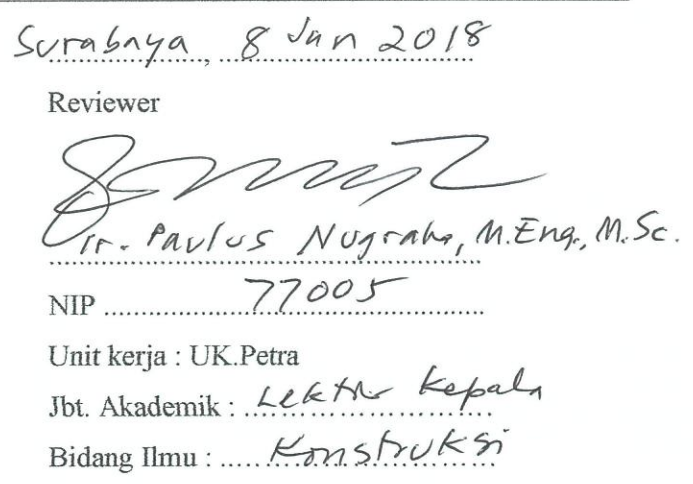 Surabaya, 8 Jan 2018
Reviewer
Ir. Paulus Nugraha, M.Eng., M.Sc.
NIP 77005
Unit kerja : UK.Petra
Jbt. Akademik : Lektor Kepala
Bidang Ilmu : Konstruksi